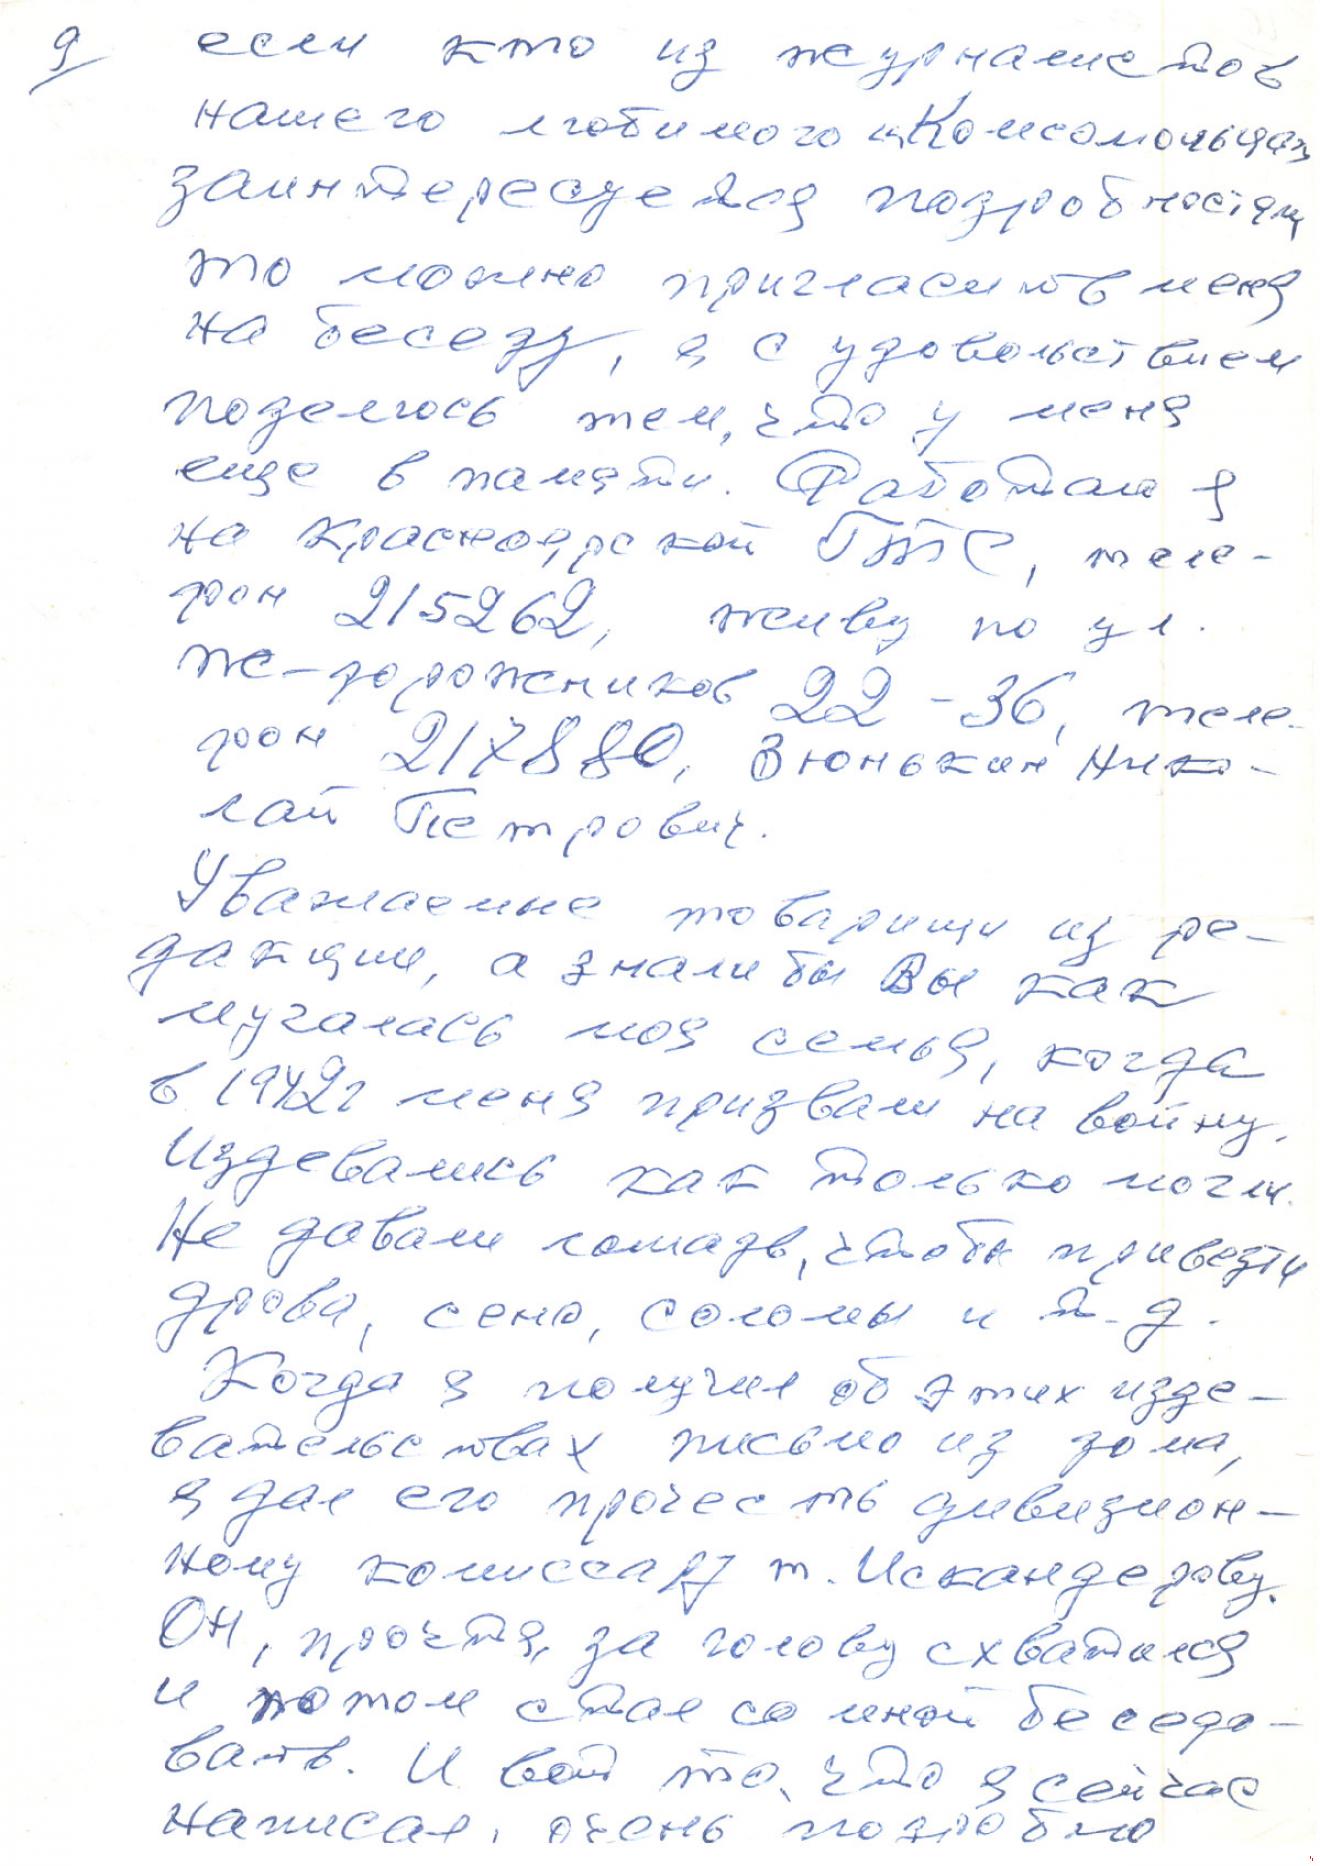 9 если кто из журналистов
нашего любимого „Комсомольца"
заинтересуется подробностями
то можно пригласить меня
на беседу, я с удовольствием
поделюсь тем, что у меня
еще в памяти. Работаю я
на Красноярской ГТТС, теле-
фон 215262, живу по ул.
Же-дорожников 22-36, теле-
фон 217880, Зюнькин Нико-
лай Петрович.
Уважаемые товарищи из ре-
дакции, а знали бы Вы как
мучалась моя семья, когда
в 1942г меня призвали на войну.
Издевались как только могли.
Не давали лошадь, чтобы привезти
дрова, сено, соломы и т.д.
Когда я получил об этих изде-
вательствах письмо из дома,
я дал его прочесть дивизион-
ному комиссару т. Искандерову.
Он, прочтя, за голову схватился
и потом стал со мной беседо-
вать. И вот то, что я сейчас
написал, очень подробно